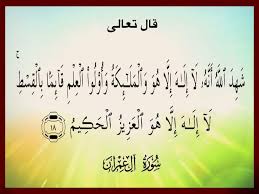 قال تعالى
شَهِدَ ٱللَّهُ أَنَّهُۥ لَآ إِلَـٰهَ إِلَّا هُوَ وَٱلْمَلَـٰٓئِكَةُ وَأُو۟لُوا۟ ٱلْعِلْمِ قَآئِمًۢا بِٱلْقِسْطِ ۚ
لَآ إِلَـٰهَ إِلَّا هُوَ ٱلْعَزِيزُ ٱلْحَكِيمُ ١٨
سُورَةُ آلِ عِمْرَان